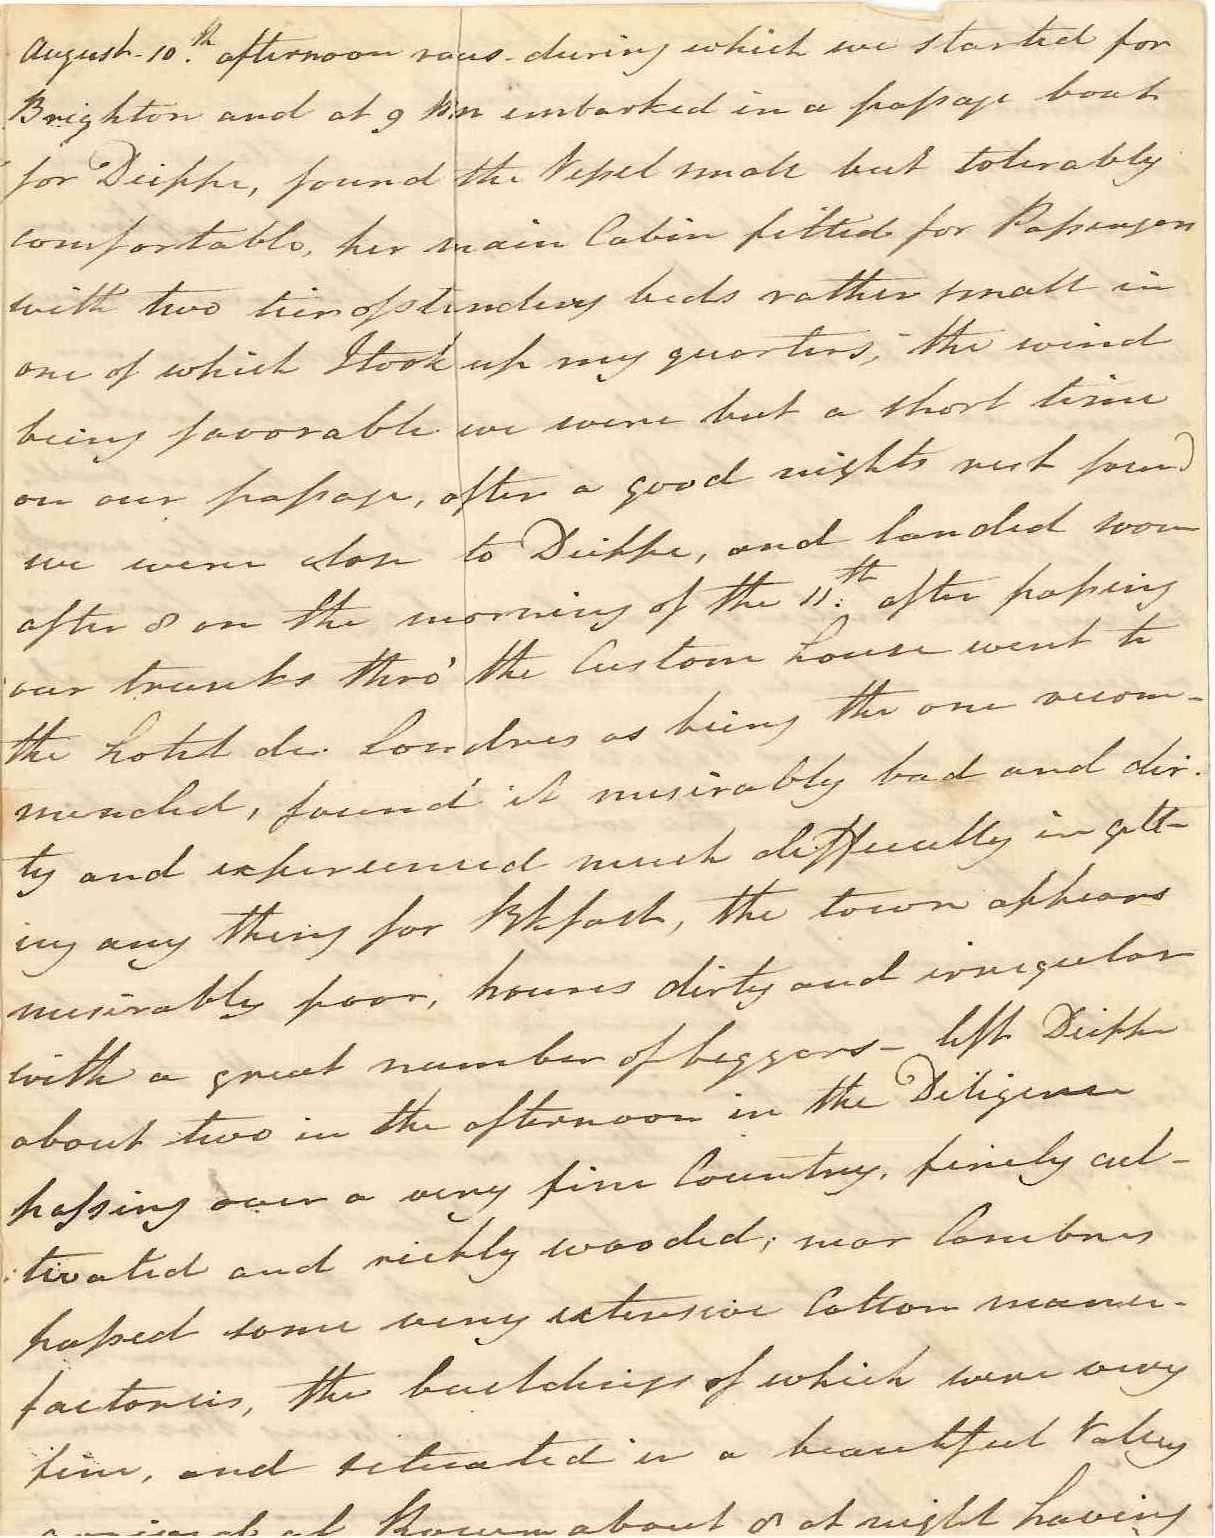 August 10.th afternoon  during which we started for
Brighton and at 9 Pm embarked in a passage boat
for Dieppe, found the Vessel small but tolerably
comfortable, her main Cabin fitted for Passengers
with two tier of standing beds rather small in
one of which I took up my quarters, the wind
being favorable we were but a short time
on our passage, after a good nights rest found
we were close to Dieppe, and landed soon
after 8 on the morning of the 11.th after passing
our trunks thro' the Custom house went to
the hotel de Londres as being the one recom-
mended, found it miserably bad and dir-
ty and experienced much difficulty in gett-
ing any thing for Bkfast, the town appears
miserably poor, houses dirty and irregular
with a great number of beggars - left Dieppe
about two in the afternoon in the Diligence
passing over a very fine Country, finely cul-
tivated and richly wooded; near
passed some very extensive Cotton manu-
factories, the buildings of which were very
fine, and situated in a beautiful Valley
arrived at Rouen about 8 at night having